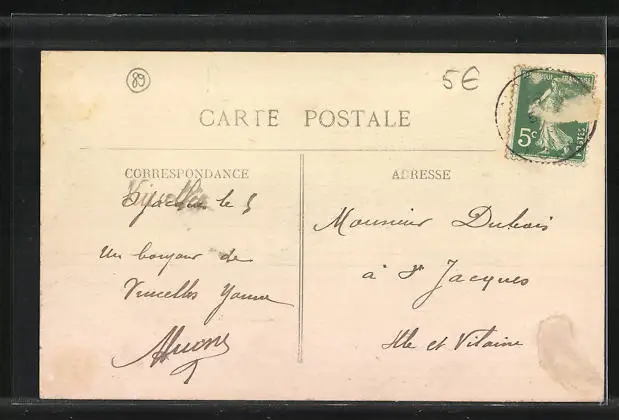 89
5€
REPUBLIQUE FRANÇAISE
5c
POSTES
CARTE POSTALE
CORRESPONDANCE
ADRESSE
le 5
Un bonjour de
Vincelles Yonne
Monsieur Dubois
à St Jacques
Ille et Vilaine